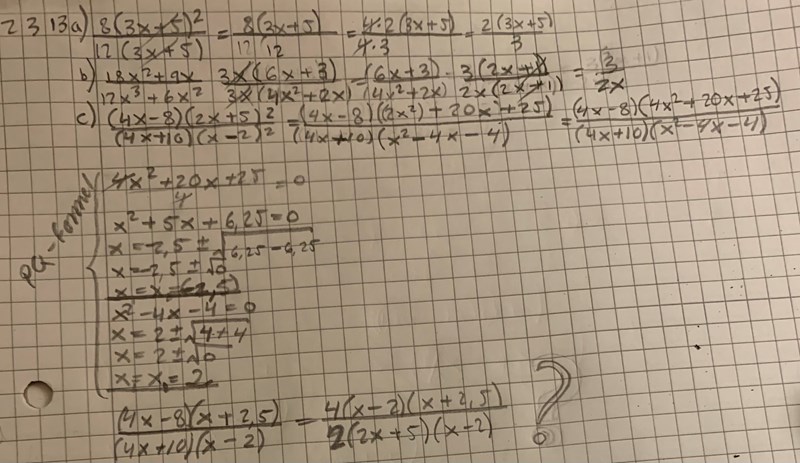 2313a) 8(3x+5)² / 12(3x+5) = 8(3x+5) / 12 = 4·2(3x+5) / 4·3 = 2(3x+5) / 3
b) 18x²+9x / 12x³+6x² = 3x(6x+3) / 3x(4x²+2x) = (6x+3) / (4x²+2x) = 3(2x+1) / 2x(2x+1) = 3 / 2x
c) (4x-8)(2x+5)² / (4x+10)(x-2)² = (4x-8)((2x²)+20x+25) / (4x+10)(x²-4x-4) = (4x-8)(4x²+20x+25) / (4x+10)(x²-4x-4)
PQ-formel
4x²+20x+25 / 4 = 0
x²+5x+6,25=0
x=-2,5 ± √6,25-6,25
x=-2,5 ± √0
x=x=(-2,5)
x²-4x-4=0
x=2±√4+4
x=2±√0
x=x=2
(4x-8)(x+2,5) / (4x+10)(x-2) = 4(x-2)(x+2,5) / 2(2x+5)(x-2) ?